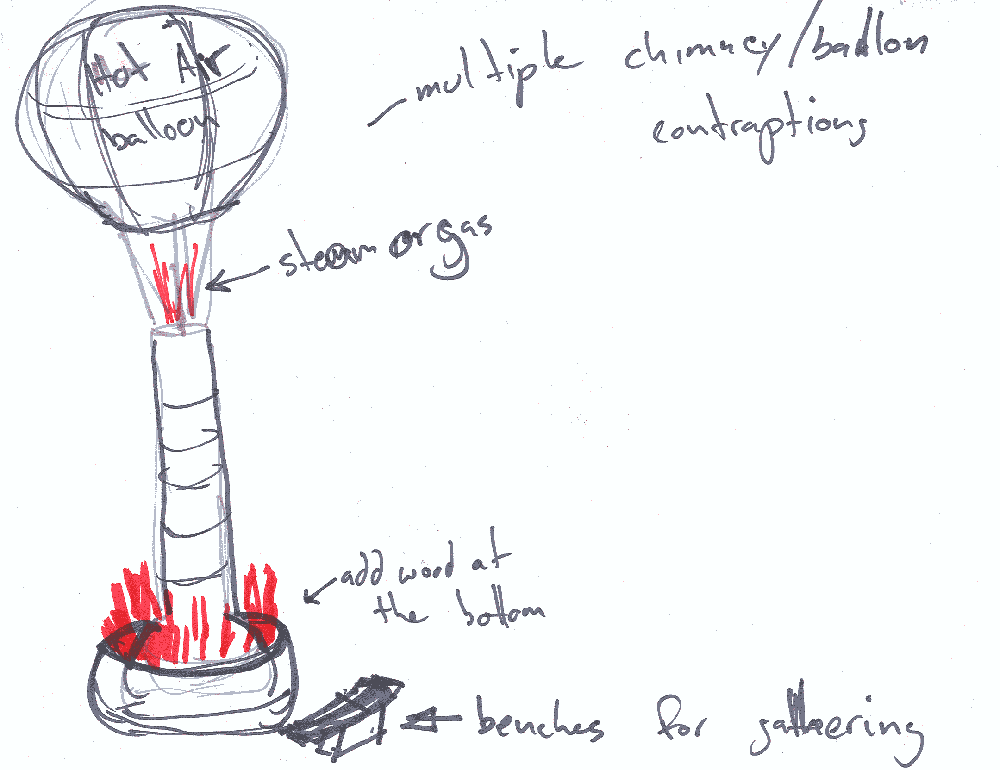 Hot Air
balloon
multiple chimney/balloon
contraptions
steam or gas
add wood at
the bottom
benches for gathering